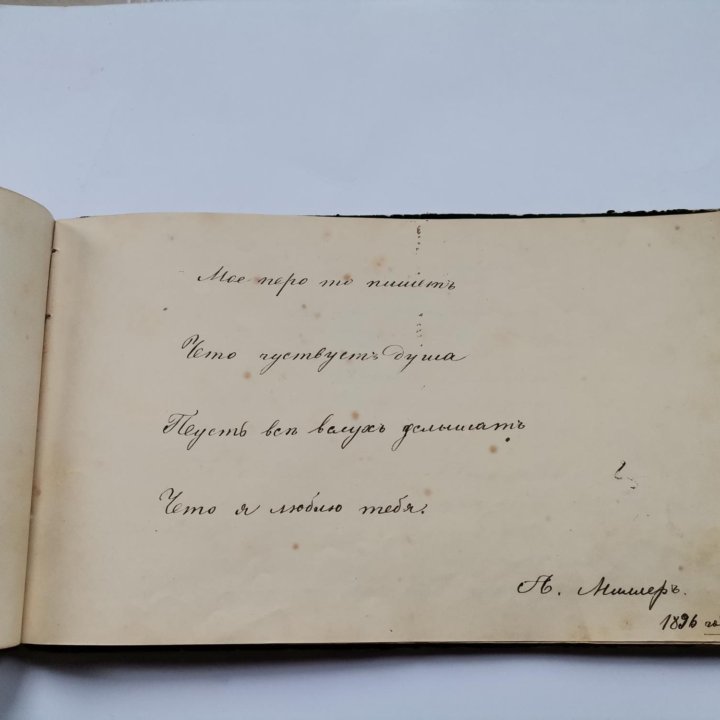 Мое перо то пишетъ
Что чуствуетъ душа
Пусть всѣ вслухъ услышатъ
Что я люблю тебя.
А. Миллеръ.
1896 го